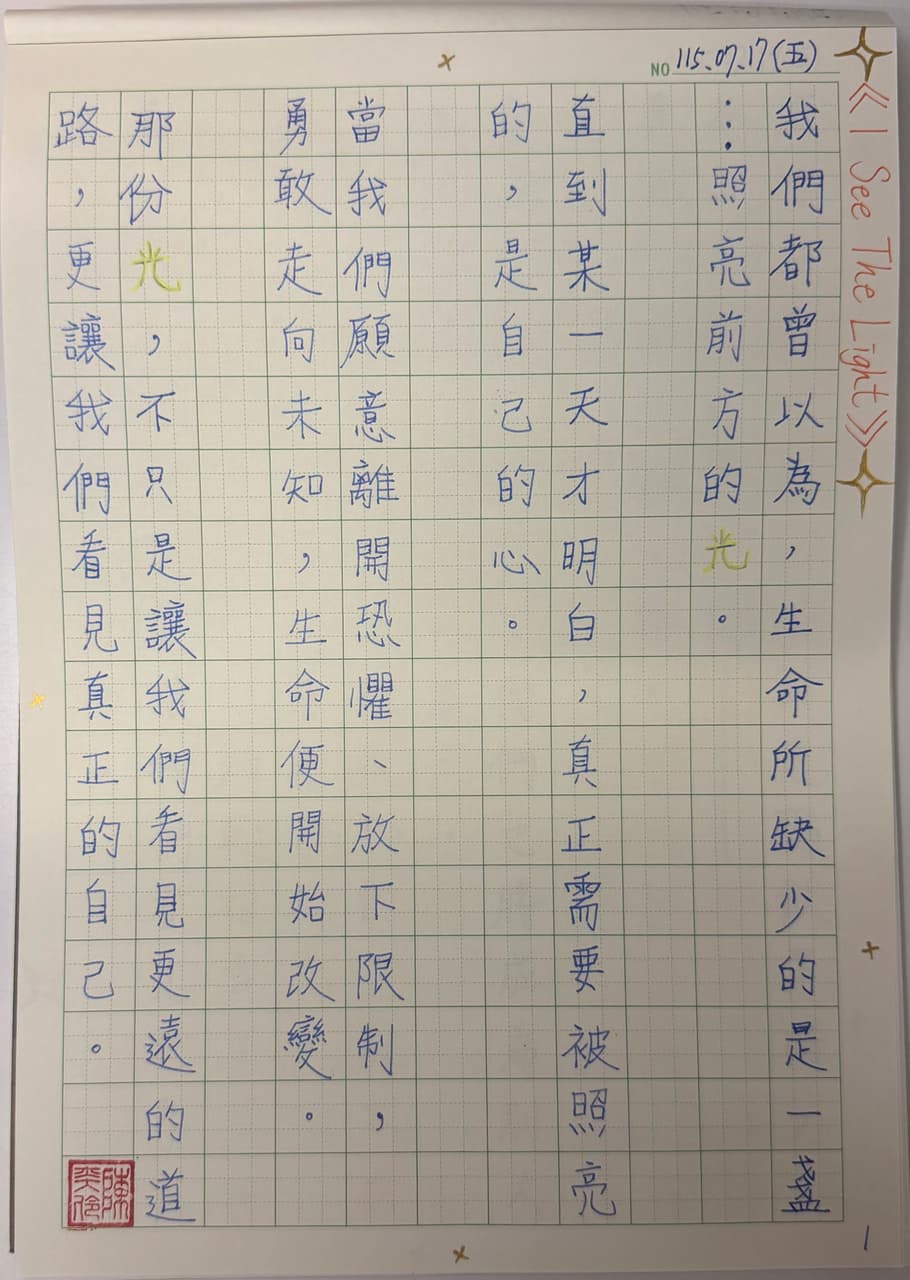 NO 115.07.17(五)
《I See The Light》
我們都曾以為，生命所缺少的是一盞
…照亮前方的光。
直到某一天才明白，真正需要被照亮
的，是自己的心。
當我們願意離開恐懼、放下限制，
勇敢走向未知，生命便開始改變。
那份光，不只是讓我們看見更遠的道
路，更讓我們看見真正的自己。
1